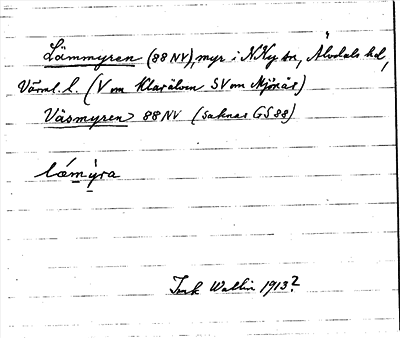 Lämmyren (88 NV), myr i N Ny sn, Älvdals hd,
Värml. l. (V om Klarälven SV om Mjönäs)
Väsmyren 88 NV (saknas GS 88)
lǽmýra
Wallin 1913?